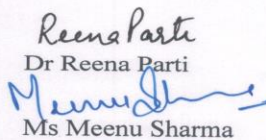 Reena Parti
Dr Reena Parti
Meenu Sharma
Ms Meenu Sharma